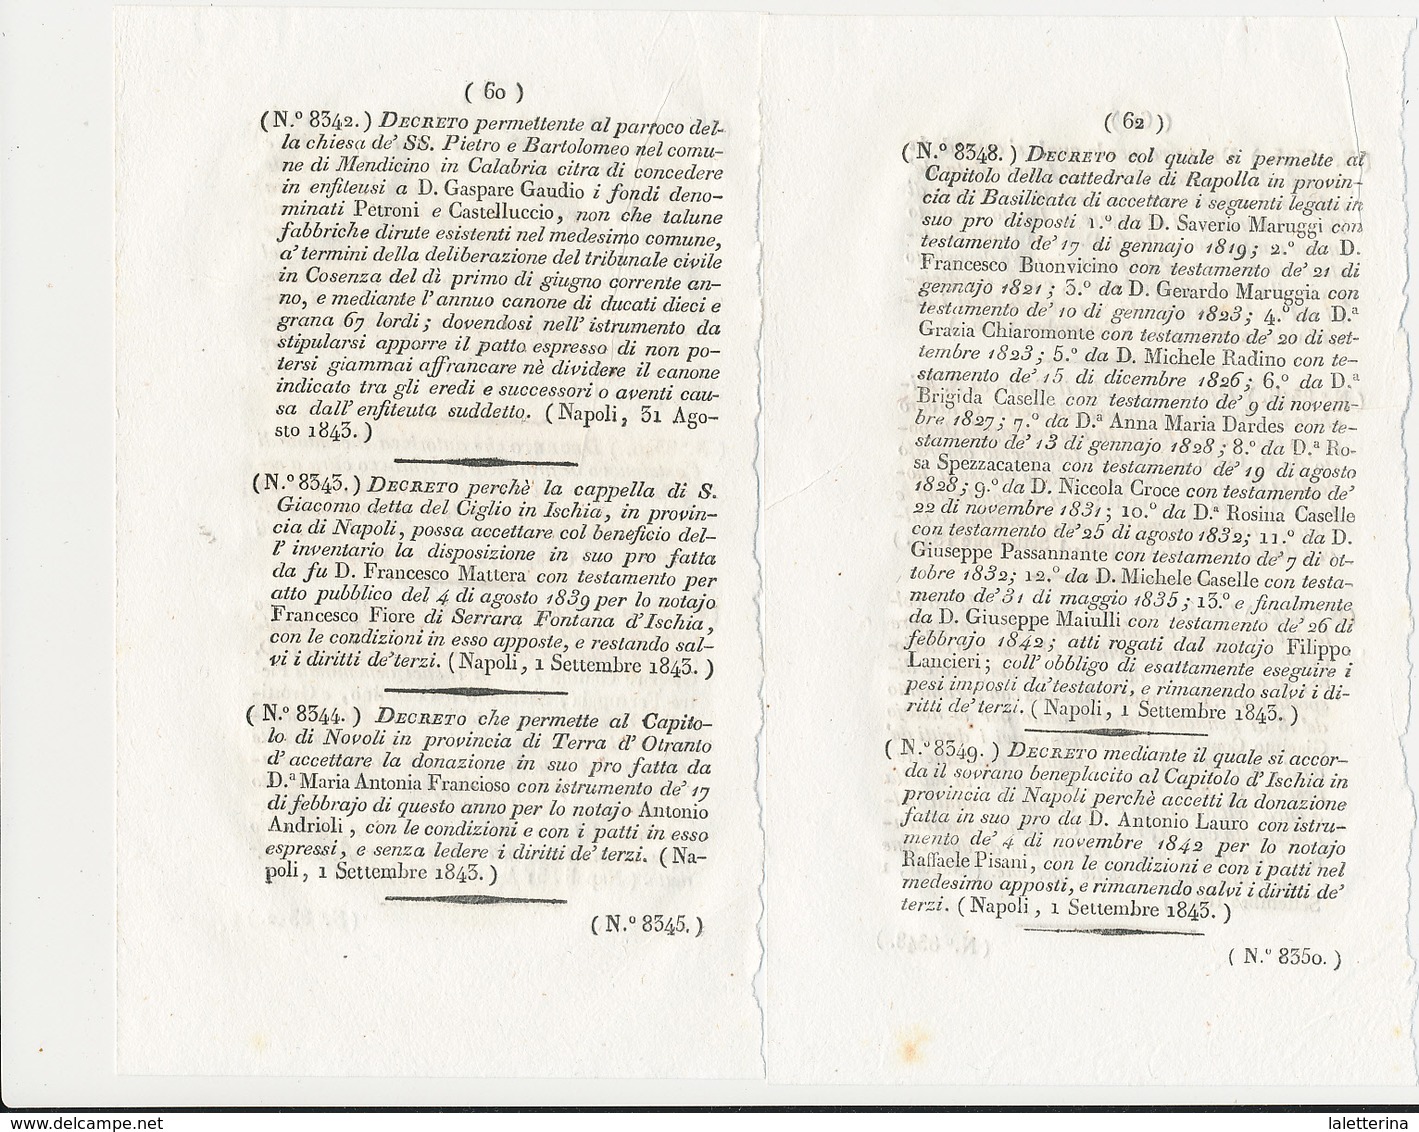 ( 60 )
(N.º 8342.) DECRETO permettente al parroco del-
la chiesa de' SS. Pietro e Bartolomeo nel comu-
ne di Mendicino in Calabria citra di concedere
in enfiteusi a D. Gaspare Gaudio i fondi deno-
minati Petroni e Castelluccio, non che talune
fabbriche dirute esistenti nel medesimo comune,
a' termini della deliberazione del tribunale civile
in Cosenza del dì primo di giugno corrente an-
no, e mediante l' annuo canone di ducati dieci e
grana 67 lordi; dovendosi nell' istrumento da
stipularsi apporre il patto espresso di non po-
tersi giammai affrancare nè dividere il canone
indicato tra gli eredi e successori o aventi cau-
sa dall' enfiteuta suddetto. (Napoli, 31 Ago-
sto 1843.)
(N.º 8343.) DECRETO perchè la cappella di S.
Giacomo detta del Ciglio in Ischia, in provin-
cia di Napoli, possa accettare col beneficio del-
l' inventario la disposizione in suo pro fatta
da fu D. Francesco Mattera con testamento per
atto pubblico del 4 di agosto 1839 per lo notajo
Francesco Fiore di Serrara Fontana d'Ischia,
con le condizioni in esso apposte, e restando sal-
vi i diritti de' terzi. (Napoli, 1 Settembre 1843.)
(N.º 8344.) DECRETO che permette al Capito-
lo di Novoli in provincia di Terra d' Otranto
d' accettare la donazione in suo pro fatta da
D.ª Maria Antonia Francioso con istrumento de' 17
di febbrajo di questo anno per lo notajo Antonio
Andrioli, con le condizioni e con i patti in esso
espressi, e senza ledere i diritti de' terzi. (Na-
poli, 1 Settembre 1843.)
(N.º 8345.)
( 62 )
(N.º 8348.) DECRETO col quale si permette al
Capitolo della cattedrale di Rapolla in provin-
cia di Basilicata di accettare i seguenti legati in
suo pro disposti 1.º da D. Saverio Maruggi con
testamento de' 17 di gennajo 1819; 2.º da D.
Francesco Buonvicino con testamento de' 21 di
gennajo 1821; 3.º da D. Gerardo Maruggia con
testamento de' 10 di gennajo 1823; 4.º da D.ª
Grazia Chiaromonte con testamento de' 20 di set-
tembre 1823; 5.º da D. Michele Radino con te-
stamento de' 15 di dicembre 1826; 6.º da D.ª
Brigida Caselle con testamento de' 9 di novem-
bre 1827; 7.º da D.ª Anna Maria Dardes con te-
stamento de' 13 di gennajo 1828; 8.º da D.ª Ro-
sa Spezzacatena con testamento de' 19 di agosto
1828; 9.º da D. Niccola Croce con testamento de'
22 di novembre 1831; 10.º da D.ª Rosina Caselle
con testamento de' 25 di agosto 1832; 11.º da D.
Giuseppe Passannante con testamento de' 7 di ot-
tobre 1832; 12.º da D. Michele Caselle con testa-
mento de' 31 di maggio 1835; 13.º e finalmente
da D. Giuseppe Maiulli con testamento de' 26 di
febbrajo 1842; atti rogati dal notajo Filippo
Lancieri; coll' obbligo di esattamente eseguire i
pesi imposti da' testatori, e rimanendo salvi i di-
ritti de' terzi. (Napoli, 1 Settembre 1843.)
(N.º 8349.) DECRETO mediante il quale si accor-
da il sovrano beneplacito al Capitolo d' Ischia in
provincia di Napoli perchè accetti la donazione
fatta in suo pro da D. Antonio Lauro con istru-
mento de' 4 di novembre 1842 per lo notajo
Raffaele Pisani, con le condizioni e con i patti nel
medesimo apposti, e rimanendo salvi i diritti de'
terzi. (Napoli, 1 Settembre 1843.)
(N.º 8350.)
www.delcampe.net
laletterina